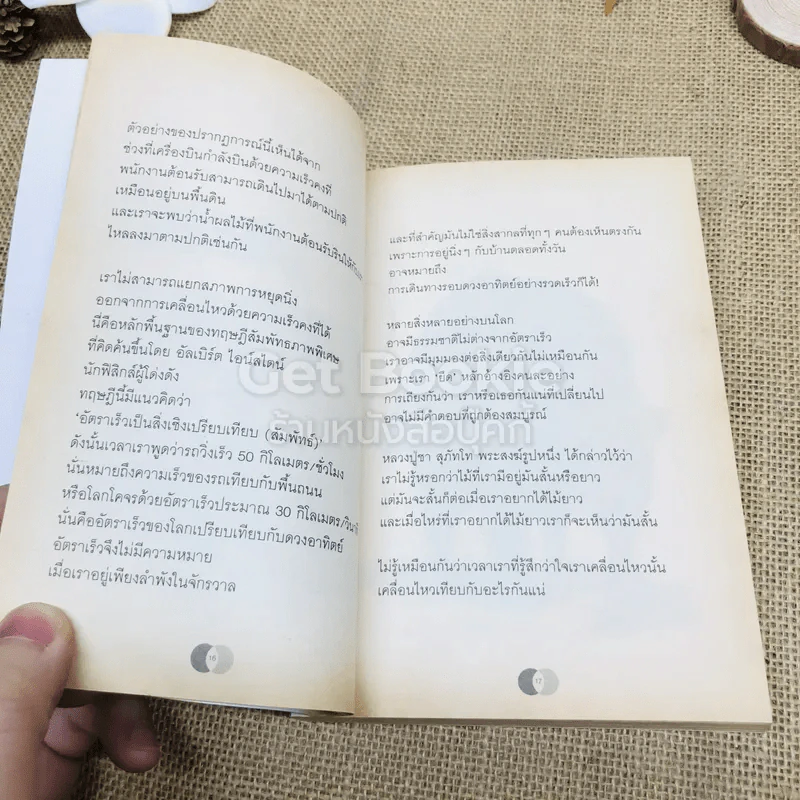 ตัวอย่างของปรากฏการณ์นี้เห็นได้จาก
ช่วงที่เครื่องบินกำลังบินด้วยความเร็วคงที่
พนักงานต้อนรับสามารถเดินไปมาได้ตามปกติ
เหมือนอยู่บนพื้นดิน
และเราจะพบว่าน้ำผลไม้ที่พนักงานต้อนรับรินให้
ไหลลงมาตามปกติเช่นกัน
เราไม่สามารถแยกสภาพการหยุดนิ่ง
ออกจากการเคลื่อนไหวด้วยความเร็วคงที่ได้
นี่คือหลักพื้นฐานของทฤษฎีสัมพัทธภาพพิเศษ
ที่คิดค้นขึ้นโดย อัลเบิร์ต ไอน์สไตน์
นักฟิสิกส์ผู้โด่งดัง
ทฤษฎีนี้มีแนวคิดว่า
'อัตราเร็วเป็นสิ่งเชิงเปรียบเทียบ (สัมพัทธ์)'
ดังนั้นเวลาเราพูดว่ารถวิ่งเร็ว 50 กิโลเมตร/ชั่วโมง
นั่นหมายถึงความเร็วของรถเทียบกับพื้นถนน
หรือโลกโคจรด้วยอัตราเร็วประมาณ 30 กิโลเมตร/วินาที
นั่นคืออัตราเร็วของโลกเปรียบเทียบกับดวงอาทิตย์
อัตราเร็วจึงไม่มีความหมาย
เมื่อเราอยู่เพียงลำพังในจักรวาล
16
และที่สำคัญมันไม่ใช่สิ่งสากลที่ทุกๆ คนต้องเห็นตรงกัน
เพราะการอยู่นิ่งๆ กับบ้านตลอดทั้งวัน
อาจหมายถึง
การเดินทางรอบดวงอาทิตย์อย่างรวดเร็วก็ได้!
หลายสิ่งหลายอย่างบนโลก
อาจมีธรรมชาติไม่ต่างจากอัตราเร็ว
เราอาจมีมุมมองต่อสิ่งเดียวกันไม่เหมือนกัน
เพราะเรา 'ยึด' หลักอ้างอิงคนละอย่าง
การเถียงกันว่า เราหรือเธอกันแน่ที่เปลี่ยนไป
อาจไม่มีคำตอบที่ถูกต้องสมบูรณ์
หลวงปู่ชา สุภัทโท พระสงฆ์รูปหนึ่ง ได้กล่าวไว้ว่า
เราไม่รู้หรอกว่าไม้ที่เรามีอยู่มันสั้นหรือยาว
แต่มันจะสั้นก็ต่อเมื่อเราอยากได้ไม้ยาว
และเมื่อไหร่ที่เราอยากได้ไม้ยาวเราก็จะเห็นว่ามันสั้น
ไม่รู้เหมือนกันว่าเวลาเราที่รู้สึกว่าใจเราเคลื่อนไหวนั้น
เคลื่อนไหวเทียบกับอะไรกันแน่
17
Get Bookie
ร้านหนังสือบุคกี้